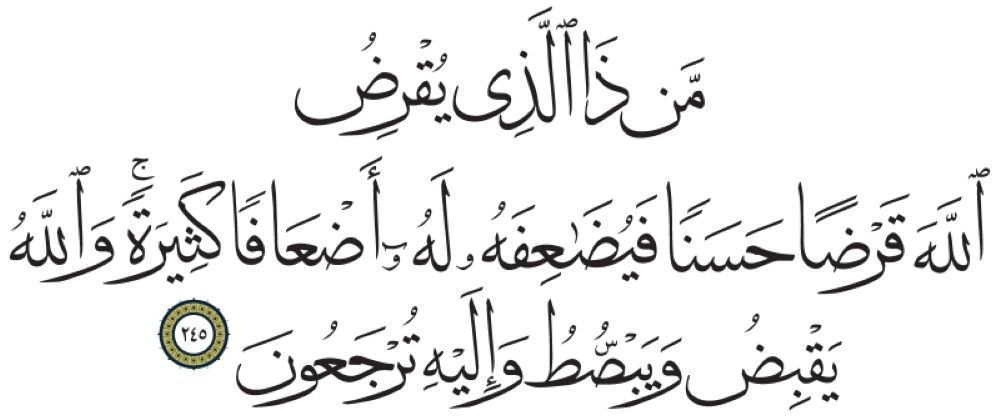 مَّن ذَا ٱلَّذِى يُقْرِضُ
ٱللَّهَ قَرْضًا حَسَنًا فَيُضَـٰعِفَهُۥ لَهُۥٓ أَضْعَافًا كَثِيرَةً ۚ وَٱللَّهُ
يَقْبِضُ وَيَبْصُۜطُ وَإِلَيْهِ تُرْجَعُونَ ٢٤٥